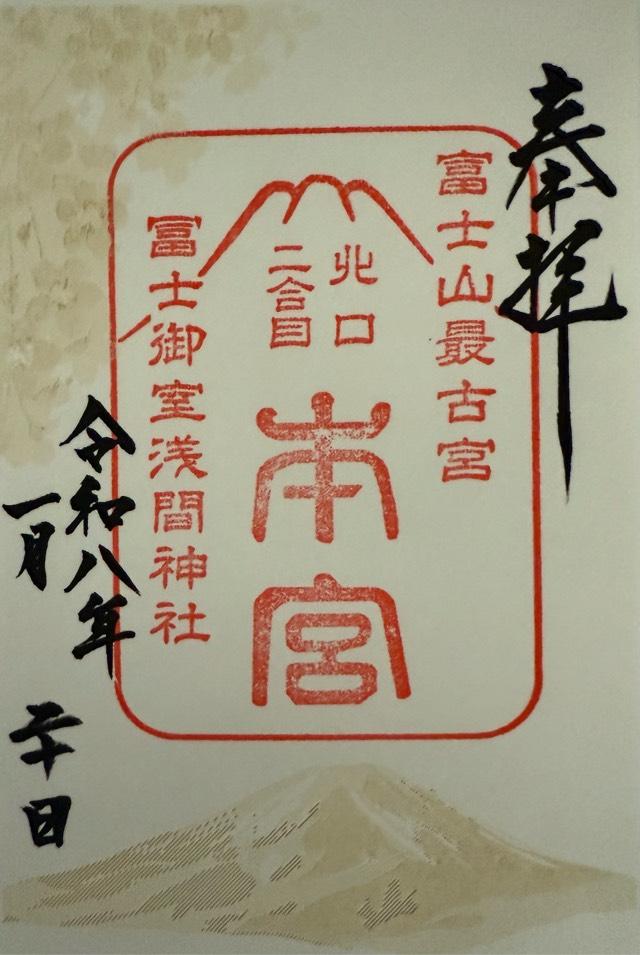 奉拝
冨士山最古宮
北口
二合目
本宮
冨士御室浅間神社
令和八年
一月
二十日